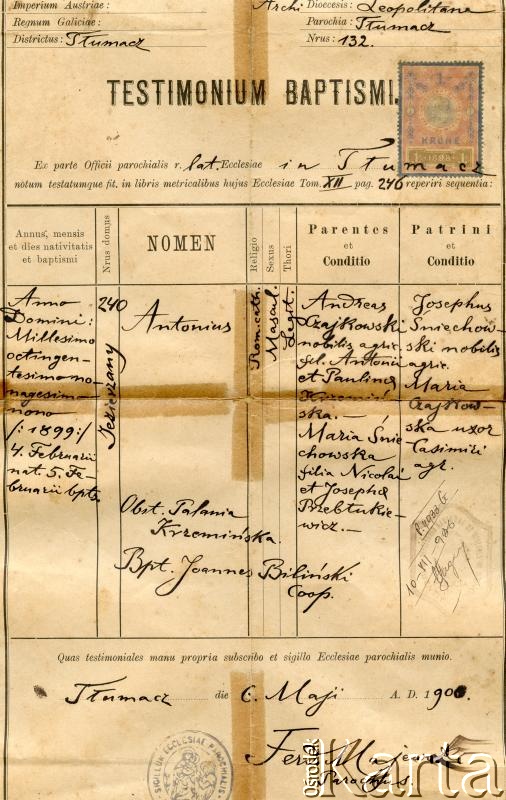 Imperium Austriae:
Regnum Galiciae:
Districtus: Tłumacz
Archi Dioecesis: Leopolitana
Parochia: Tłumacz
Nrus: 132.
TESTIMONIUM BAPTISMI.
1
KRONE
1898
Ex parte Officii parochialis r. lat. Ecclesiae in Tłumacz
notum testatumque fit, in libris metricalibus hujus Ecclesiae Tom. XII pag. 246 reperiri sequentia:
Annus, mensis
et dies nativitatis
et baptismi
Nrus domus
NOMEN
Religio
Sexus
Thori
Parentes
et
Conditio
Patrini
et
Conditio
Anno
Domini:
Millesimo
octingen-
tesimo no-
nagesimo
nono
/: 1899:/
4. Februarii
nat. 5. Fe-
bruarii bpts.
240
Jezierzany
Antonius
Obst. Palania
Krzemińska.
Bpt. Joannes Biliński
Coop.
Rom. cath.
Mascul.
Legit.
Andreas
Czajkowski
nobilis agric.
fil. Antonii
et Paulina
Krzemiń-
ska.—
Maria Śnie-
chowska
filia Nicolai
et Josepha
Brzbtukie-
wicz.—
Josephus
Śniechow-
ski nobilis
agric.
Maria
Czajkow-
ska uxor
Casimiri
agr.
10-VI-906
Quas testimoniales manu propria subscribo et sigillo Ecclesiae parochialis munio.
Tłumacz die 6. Maji A. D. 1906.
SIGILLUM ECCLESIAE PAROCHIALIS
Ferd Majewski
Parochus.
Ośrodek
Karta